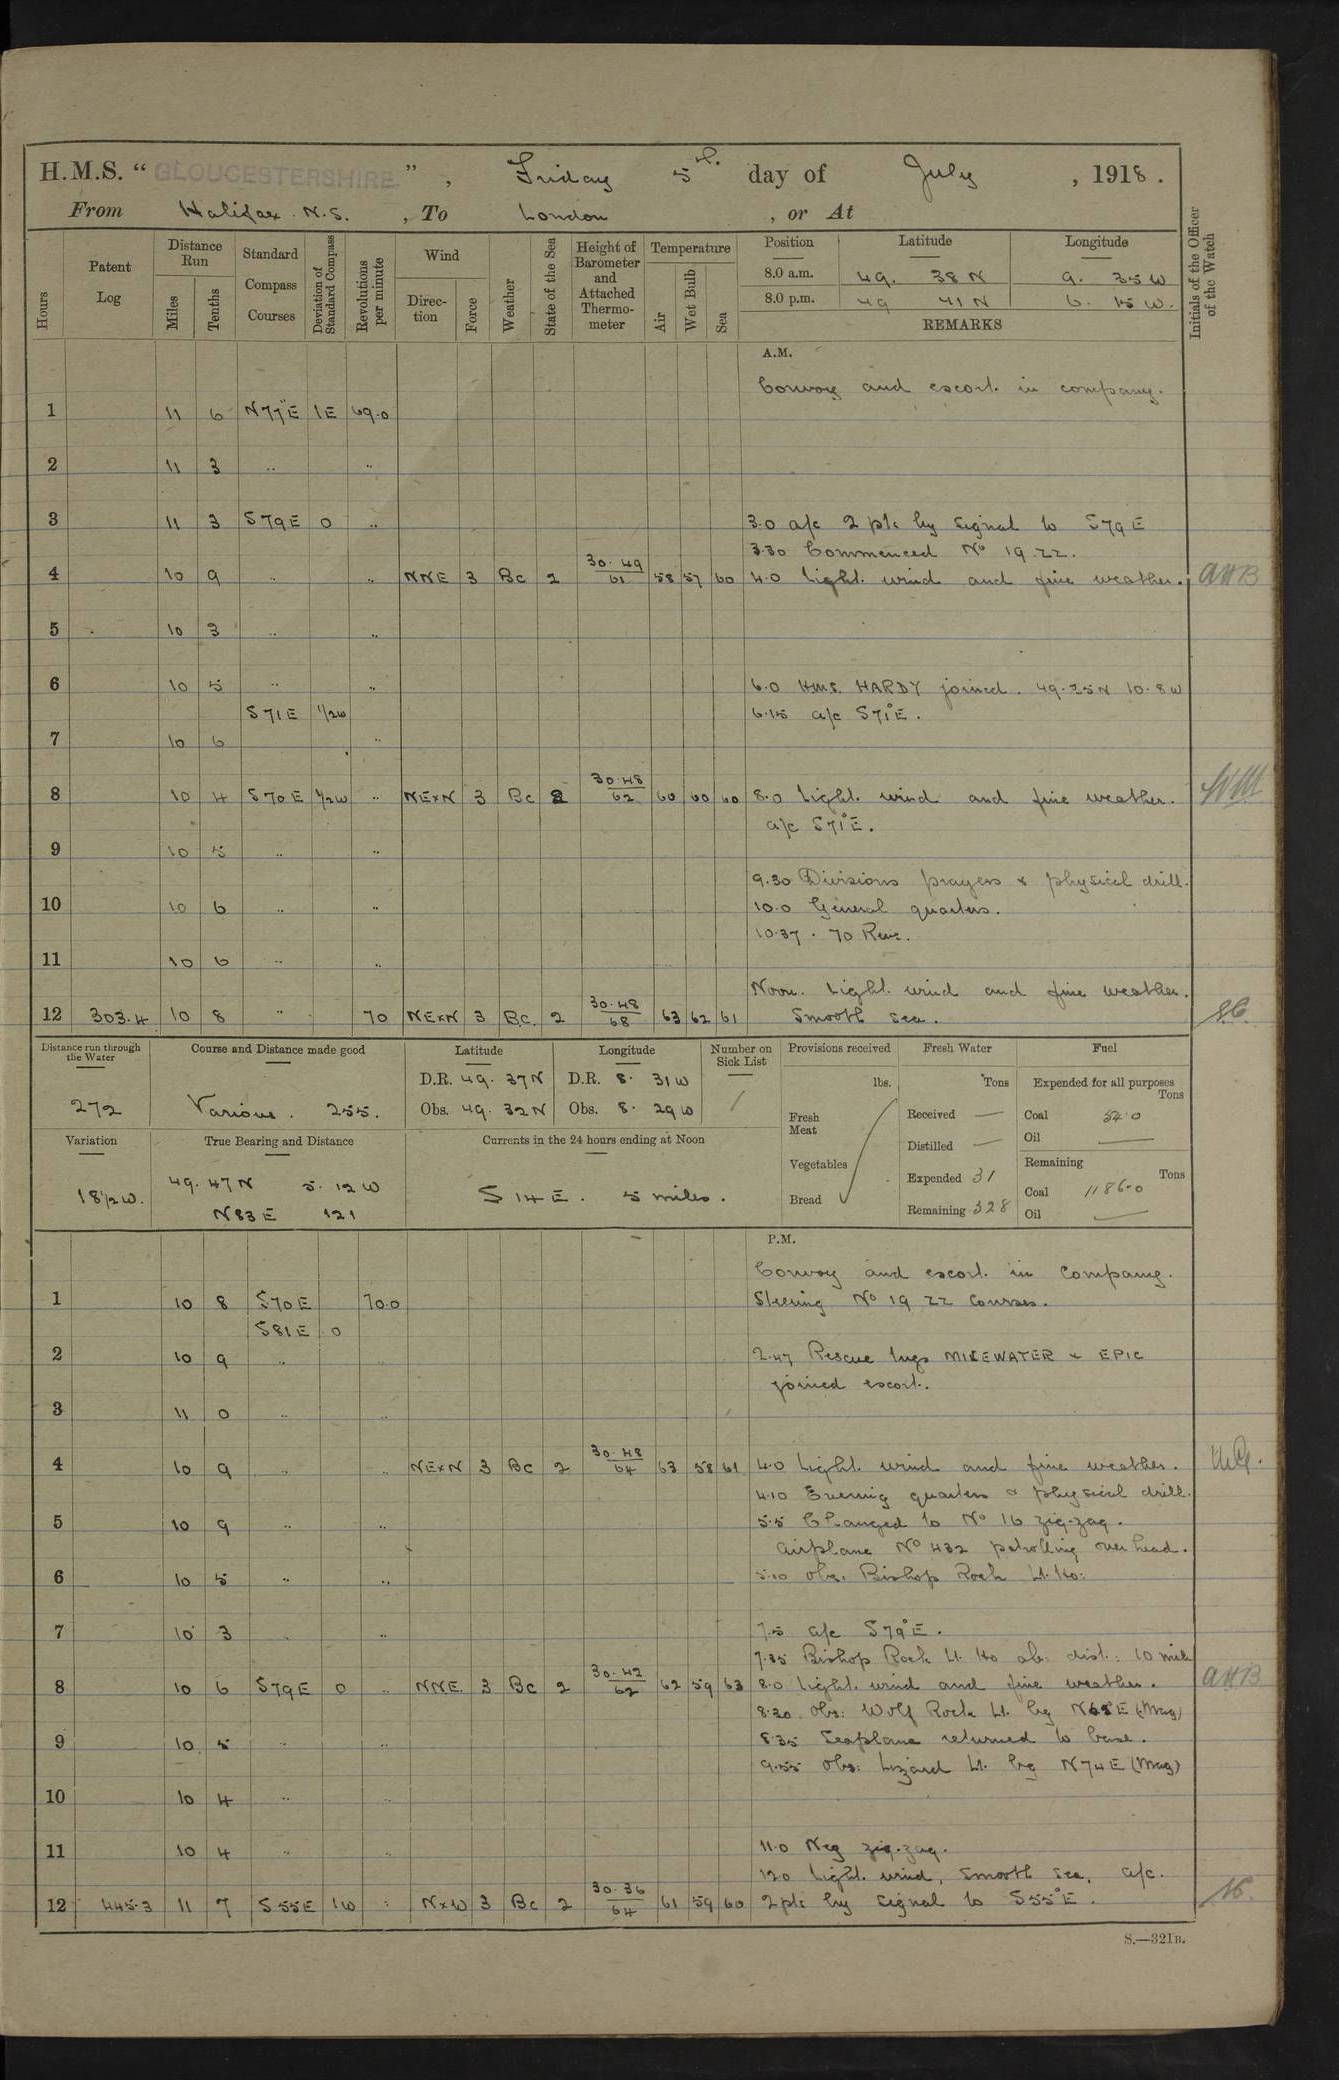 H.M.S. “ GLOUCESTERSHIRE ” , Friday 5th. day of July , 1918 .
From Halifax N.S. , To London , or At
Hours
Patent Log
Distance Run
Miles
Tenths
Standard Compass Courses
Deviation of Standard Compass
Revolutions per minute
Wind
Direction
Force
Weather
State of the Sea
Height of Barometer and Attached Thermometer
Temperature
Air
Wet Bulb
Sea
Position Latitude Longitude
8.0 a.m. 49. 38 N 9. 35 W
8.0 p.m. 49 41 N 6. 15 W.
REMARKS
Initials of the Officer of the Watch
A.M.
Convoy and escort in company.
1 11 6 N77°E 1E 69.0
2 11 3 .. ..
3 11 3 S79E 0 .. 3.0 a/c 2 pts by signal to S79E
3.30 Commenced No 19 ZZ.
4 10 9 .. .. NNE 3 Bc 2 30.49 61 58 57 60 4.0 Light wind and fine weather. AHB
5 10 3 .. ..
6 10 5 .. .. 6.0 H.M.S. HARDY joined. 49.25N 10.8W
S71E 1/2W 6.15 a/c S71°E.
7 10 6 ..
8 10 4 S70E 1/2W .. NExN 3 Bc 2 30.48 62 60 60 60 8.0 Light wind and fine weather.
a/c S71°E.
9 10 5 .. ..
9.30 Divisions prayers & physical drill.
10 10 6 .. .. 10.0 General quarters.
10.37 . 70 Revs.
11 10 6 .. ..
Noon. Light wind and fine weather.
12 303.4 10 8 .. 70 NExN 3 Bc. 2 30.48 68 63 62 61 Smooth sea.
Distance run through the Water
272
Course and Distance made good
Various. 255.
Latitude
D.R. 49. 37N
Obs. 49. 32N
Longitude
D.R. 8. 31W
Obs. 8. 29W
Number on Sick List
/
Provisions received
lbs.
Fresh Meat
Vegetables
Bread
Fresh Water
Tons
Received —
Distilled —
Expended 31
Remaining 328
Fuel
Expended for all purposes
Tons
Coal 54.0
Oil —
Remaining
Tons
Coal 1186.0
Oil —
Variation
18½W.
True Bearing and Distance
49. 47N 5. 12W
N83E 121
Currents in the 24 hours ending at Noon
S 14 E . 5 miles.
P.M.
Convoy and escort in Company.
1 10 8 S70E 70.0 Steering No 19 ZZ Courses.
S81E 0
2 10 9 .. 2.47 Rescue tugs MILEWATER & EPIC
joined escort.
3 11 0 .. ..
4 10 9 .. .. NExN 3 Bc 2 30.48 64 63 58 61 4.0 Light wind and fine weather.
4.10 Evening quarters & physical drill.
5 10 9 .. .. 5.5 Changed to No 16 zig-zag.
Airplane No 432 patrolling over head.
6 10 5 .. .. 5.10 Obs. Bishop Rock Lt. Ho:
7 10 3 .. .. 7.5 a/c S79°E.
7.35 Bishop Rock Lt. Ho ab: dist: 10 mile
8 10 6 S79E 0 .. NNE 3 Bc 2 30.42 62 62 59 63 8.0 Light wind and fine weather. AHB
8.20. Obs: Wolf Rock Lt. bg E (Mag)
9 10 5 .. .. 8.35 Seaplane returned to base.
9.55 Obs: Lizard Lt. bg N74E (Mag)
10 10 4 .. ..
11 10 4 .. .. 11.0 Neg zig-zag.
12.0 Light wind, smooth sea, a/c.
12 445.3 11 7 S55E 1W : NxW 3 Bc 2 30.36 64 61 59 60 2 pts by signal to S55°E.
S.—321B.